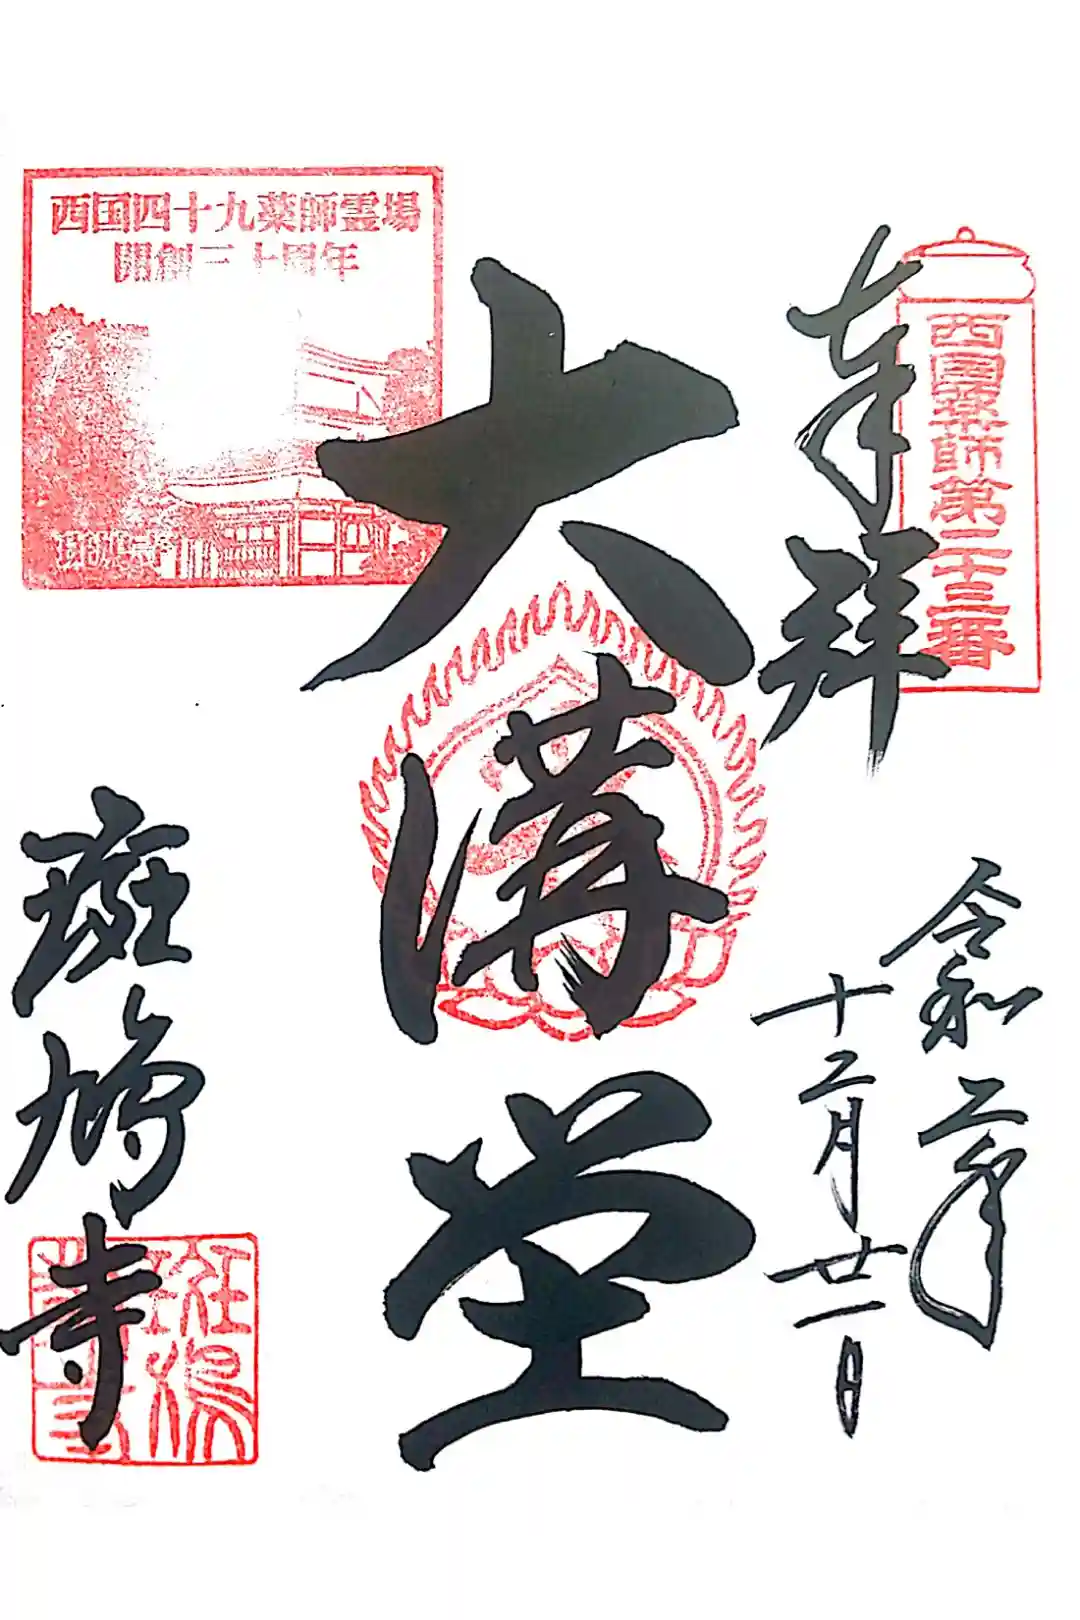 奉拝
西国薬師第二十三番
令和二年
十二月廿一日
大講堂
西国四十九薬師霊場
開創三十周年
斑鳩寺
斑鳩寺